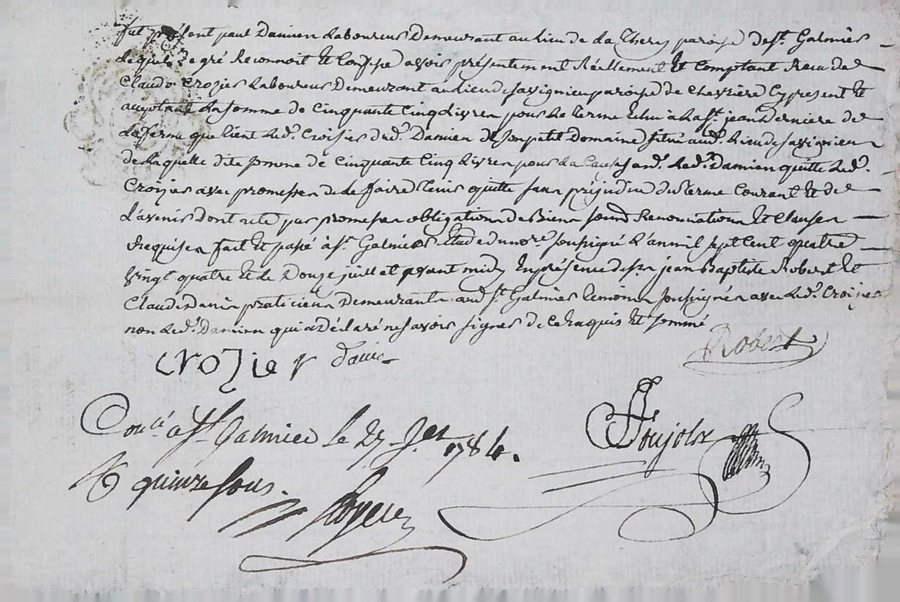 fut présent paul Damien Laboureur Demeurant au lieu de la Thery paroisse de St. Galmier
Lequel de gré Reconnoit et Confesse avoir présentement Réellement Et Comptant Receu de
Claude Crozier Laboureur Demeurant au lieu de Savignieu paroisse de Chevrière Cy present Et
aceptant La somme de Cinquante Cinq Livres pour le terme Echu a la St. jean derniere de
La ferme que tient Led. Croisier dud. Damien de son petit Domaine situé aud. Lieu de Savignieu
de Laquelle dite somme de Cinquante Cinq Livres pour La Cause and. Led. Damien quitte Led.
Crozier avec promesse de Le faire tenir quitte sans prejudice du terme Courant et de
L'avenir dont acte par promesses obligations de Biens soumd. Renonciations Et Clauses
Requises fait Et passé à St. Galmier Etude du nore. soussigné L'an mil sept Cent quatre
vingt quatre et le Douze juillet avant midy En présence de sr. jean Baptiste Robert Et
Claude Denis praticiens Demeurants aud. St. Galmier temoins soussignés avec Led. Crozier
non Led. Damien qui a déclaré ne savoir signer de Ce Requis Et sommé
Crozier Denis Robert
Conlé à St. Galmier le 27 1784.
quinze sous.